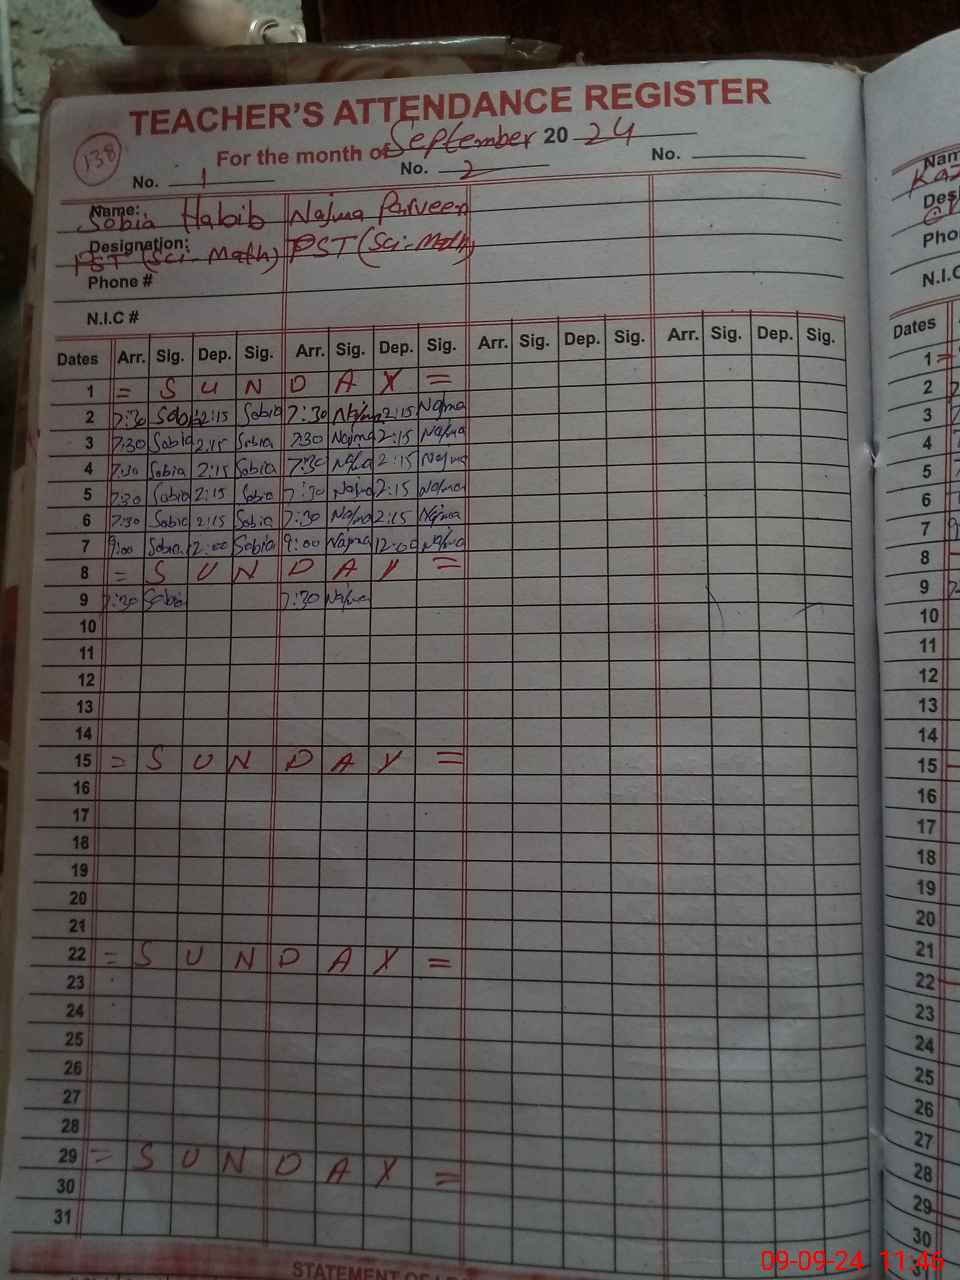 TEACHER'S ATTENDANCE REGISTER
138 For the month of September 20 24
No. 1 No. 2 No.
Name: Sobia Habib Najma Parveen
Designation: PST (Sci-Math) PST (Sci-Math)
Phone #
N.I.C #
Dates Arr. Sig. Dep. Sig. Arr. Sig. Dep. Sig. Arr. Sig. Dep. Sig. Arr. Sig. Dep. Sig.
1 = S U N D A Y =
2 7:30 Sobia 2:15 Sobia 7:30 Najma 2:15 Najma
3 7:30 Sobia 2:15 Sobia 7:30 Najma 2:15 Najma
4 7:30 Sobia 2:15 Sobia 7:30 Najma 2:15 Najma
5 7:30 Sobia 2:15 Sobia 7:30 Najma 2:15 Najma
6 7:30 Sobia 2:15 Sobia 7:30 Najma 2:15 Najma
7 9:00 Sobia 12:00 Sobia 9:00 Najma 12:00 Najma
8 = S U N D A Y =
9 7:30 Sobia 7:30 Najma
10
11
12
13
14
15 = S U N D A Y =
16
17
18
19
20
21
22 = S U N D A Y =
23
24
25
26
27
28
29 = S U N D A Y =
30
31
STATEMENT OF
Phone
N.I.C
Dates
1 =
2
3
4
5
6
7
8
9
10
11
12
13
14
15
16
17
18
19
20
21
22
23
24
25
26
27
28
29
30
31
09-09-24 11:46